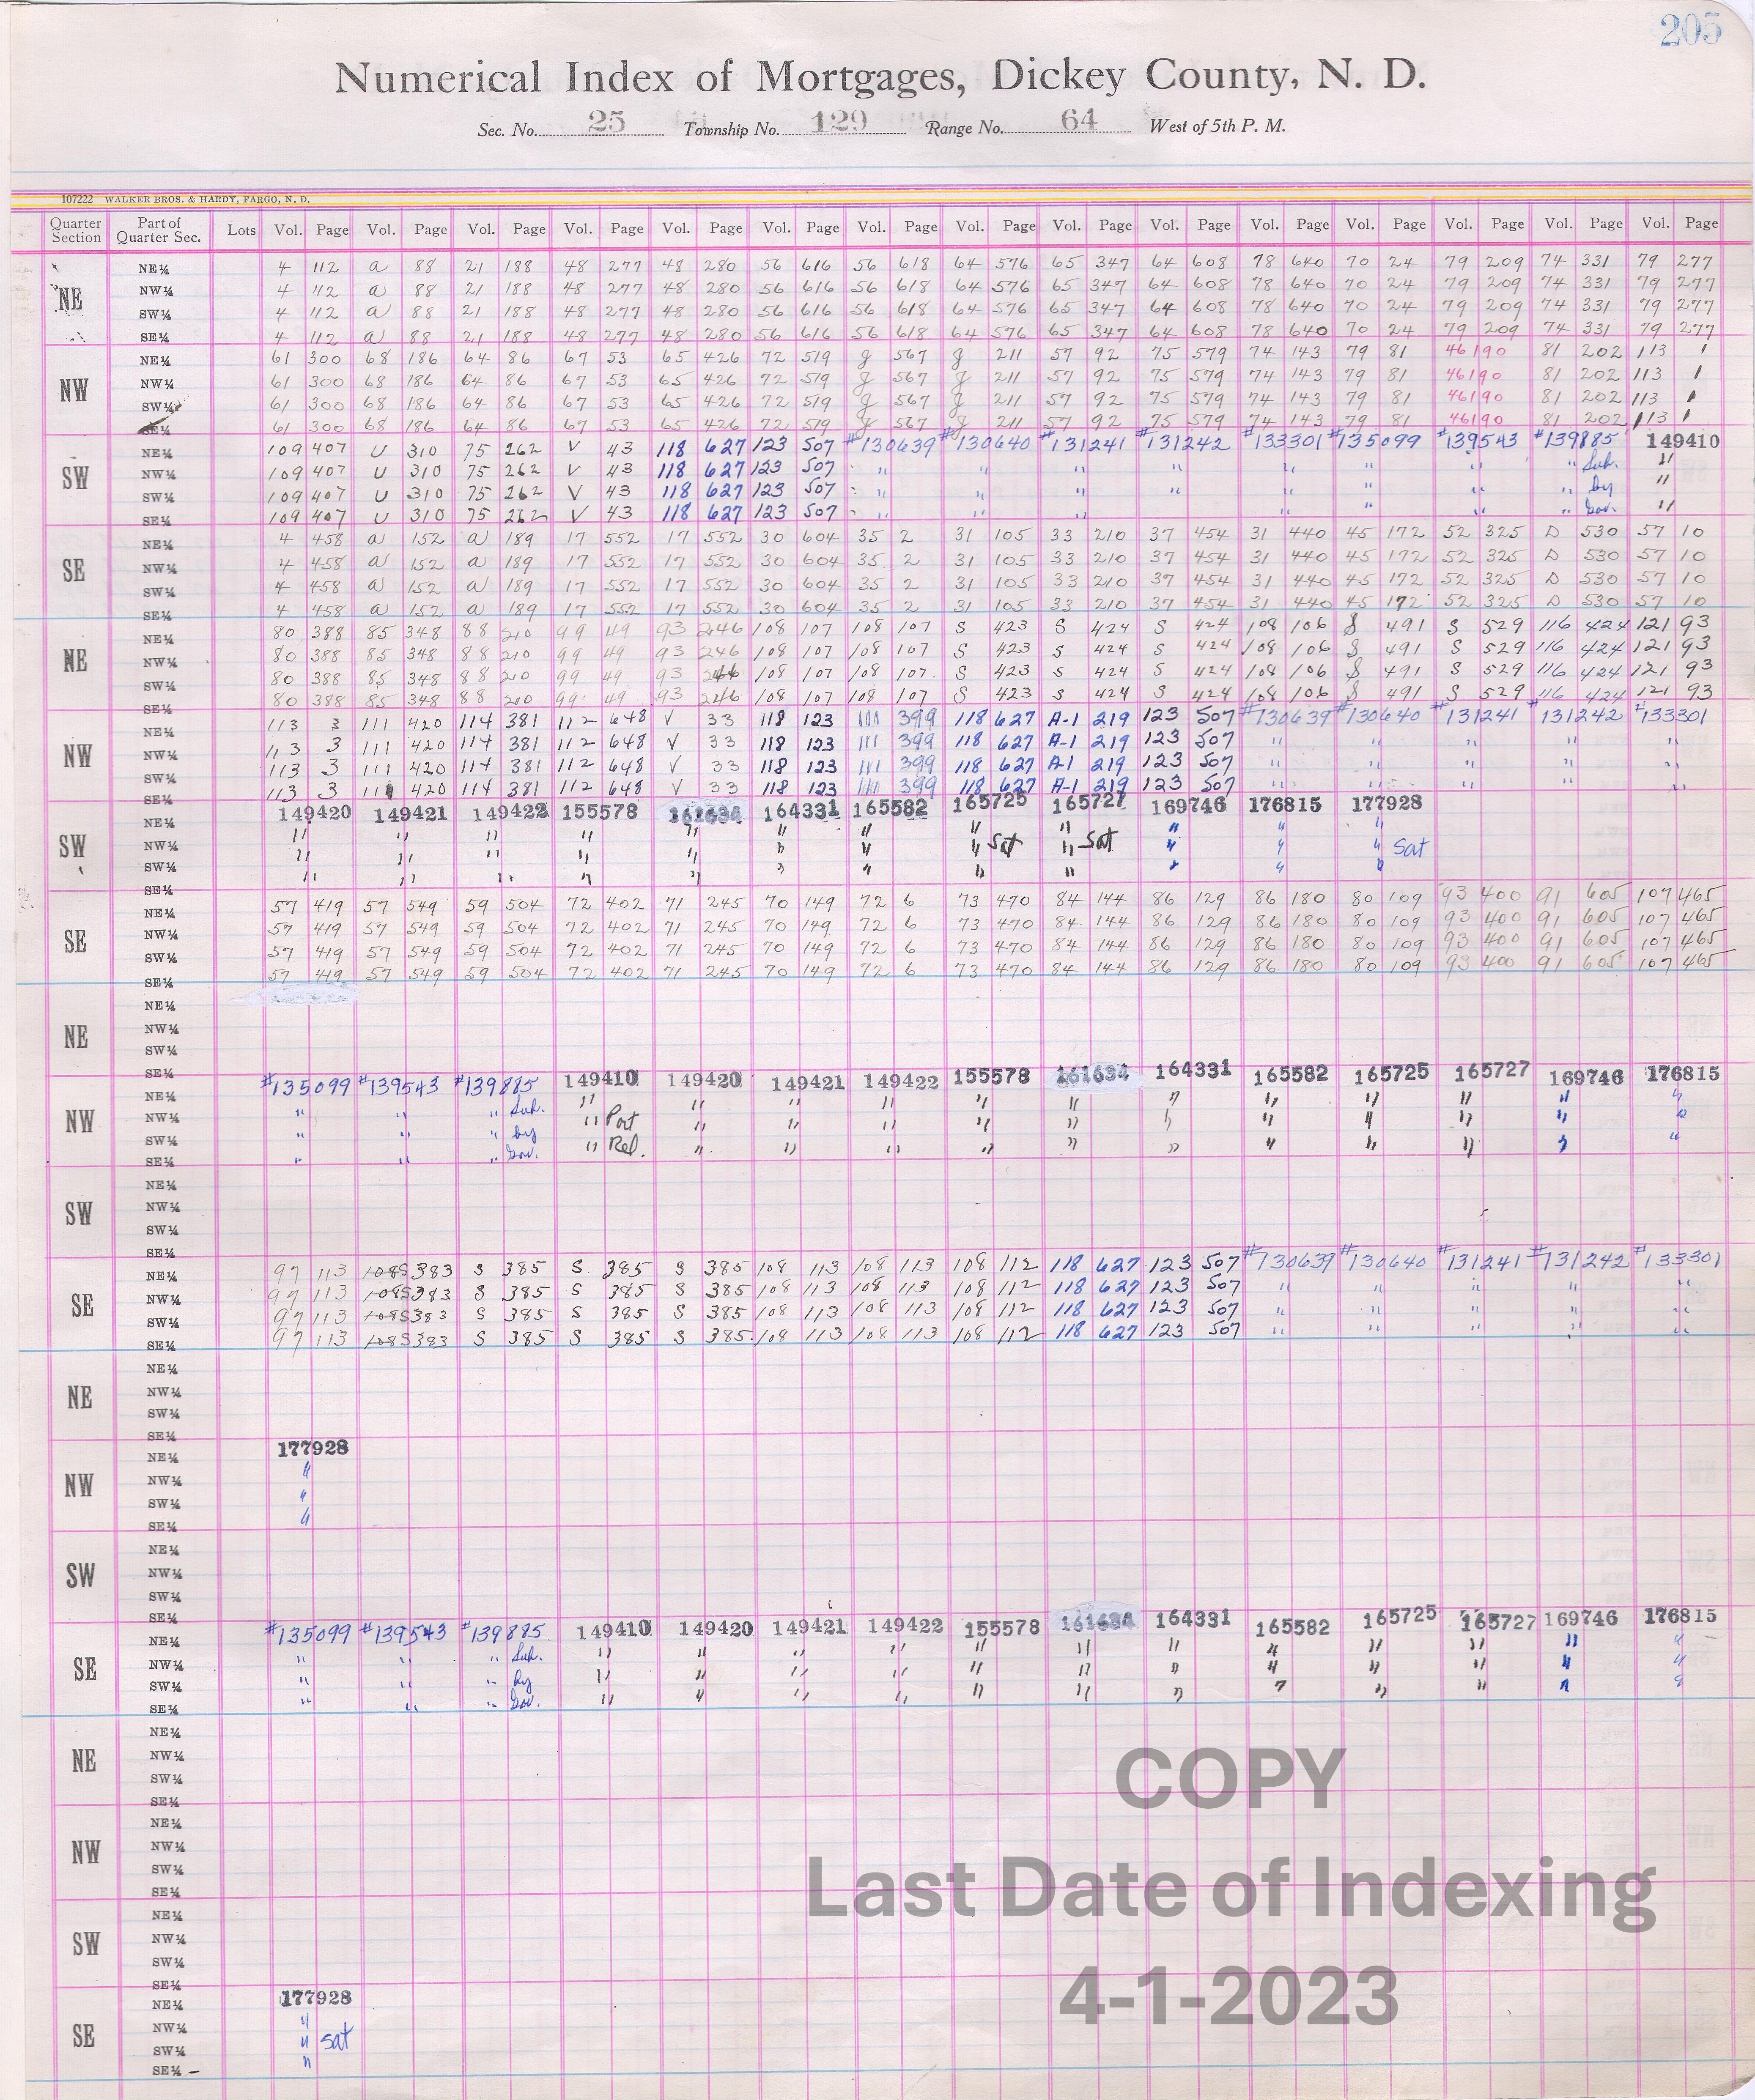 205
Numerical Index of Mortgages, Dickey County, N. D.
Sec. No. 25 Township No. 129 Range No. 64 West of 5th P. M.
107222 WALKER BROS. & HARDY, FARGO, N. D.
Quarter Section Part of Quarter Sec. Lots Vol. Page Vol. Page Vol. Page Vol. Page Vol. Page Vol. Page Vol. Page Vol. Page Vol. Page Vol. Page Vol. Page Vol. Page Vol. Page Vol. Page Vol. Page
NE NE¼ 4 112 a 88 21 188 48 277 48 280 56 616 56 618 64 576 65 347 64 608 78 640 70 24 79 209 74 331 79 277
NW¼ 4 112 a 88 21 188 48 277 48 280 56 616 56 618 64 576 65 347 64 608 78 640 70 24 79 209 74 331 79 277
SW¼ 4 112 a 88 21 188 48 277 48 280 56 616 56 618 64 576 65 347 64 608 78 640 70 24 79 209 74 331 79 277
SE¼ 4 112 a 88 21 188 48 277 48 280 56 616 56 618 64 576 65 347 64 608 78 640 70 24 79 209 74 331 79 277
NW NE¼ 61 300 68 186 64 86 67 53 65 426 72 519 g 567 g 211 57 92 75 579 74 143 79 81 46190 81 202 113 1
NW¼ 61 300 68 186 64 86 67 53 65 426 72 519 g 567 g 211 57 92 75 579 74 143 79 81 46190 81 202 113 1
SW¼ 61 300 68 186 64 86 67 53 65 426 72 519 g 567 g 211 57 92 75 579 74 143 79 81 46190 81 202 113 1
SE¼ 61 300 68 186 64 86 67 53 65 426 72 519 g 567 g 211 57 92 75 579 74 143 79 81 46190 81 202 113 1
SW NE¼ 109 407 U 310 75 262 V 43 118 627 123 507 #130639 #130640 #131241 #131242 #133301 #135099 #139543 #139885 149410
NW¼ 109 407 U 310 75 262 V 43 118 627 123 507 " " " " " " " " Sub. "
SW¼ 109 407 U 310 75 262 V 43 118 627 123 507 " " " " " " " " by "
SE¼ 109 407 U 310 75 262 V 43 118 627 123 507 " " " " " " " Gov. "
SE NE¼ 4 458 a 152 a 189 17 552 17 552 30 604 35 2 31 105 33 210 37 454 31 440 45 172 52 325 D 530 57 10
NW¼ 4 458 a 152 a 189 17 552 17 552 30 604 35 2 31 105 33 210 37 454 31 440 45 172 52 325 D 530 57 10
SW¼ 4 458 a 152 a 189 17 552 17 552 30 604 35 2 31 105 33 210 37 454 31 440 45 172 52 325 D 530 57 10
SE¼ 4 458 a 152 a 189 17 552 17 552 30 604 35 2 31 105 33 210 37 454 31 440 45 172 52 325 D 530 57 10
NE NE¼ 80 388 85 348 88 210 99 49 93 246 108 107 108 107 S 423 S 424 S 424 108 106 S 491 S 529 116 424 121 93
NW¼ 80 388 85 348 88 210 99 49 93 246 108 107 108 107 S 423 S 424 S 424 108 106 S 491 S 529 116 424 121 93
SW¼ 80 388 85 348 88 210 99 49 93 246 108 107 108 107 S 423 S 424 S 424 108 106 S 491 S 529 116 424 121 93
SE¼ 80 388 85 348 88 210 99 49 93 246 108 107 108 107 S 423 S 424 S 424 108 106 S 491 S 529 116 424 121 93
NW NE¼ 113 3 111 420 114 381 112 648 V 33 118 123 111 399 118 627 A-1 219 123 507 #130639 #130640 #131241 #131242 #133301
NW¼ 113 3 111 420 114 381 112 648 V 33 118 123 111 399 118 627 A-1 219 123 507 " " " " "
SW¼ 113 3 111 420 114 381 112 648 V 33 118 123 111 399 118 627 A-1 219 123 507 " " " " "
SE¼ 113 3 111 420 114 381 112 648 V 33 118 123 111 399 118 627 A-1 219 123 507 " " " " "
SW NE¼ 149420 149421 149422 155578 161634 164331 165582 165725 165727 169746 176815 177928
NW¼ " " " " " " " " Sat " Sat " " " Sat
SW¼ " " " " " " " " " " " "
SE¼ " " " " " " " " " " " "
SE NE¼ 57 419 57 549 59 504 72 402 71 245 70 149 72 6 73 470 84 144 86 129 86 180 80 109 93 400 91 605 107 465
NW¼ 57 419 57 549 59 504 72 402 71 245 70 149 72 6 73 470 84 144 86 129 86 180 80 109 93 400 91 605 107 465
SW¼ 57 419 57 549 59 504 72 402 71 245 70 149 72 6 73 470 84 144 86 129 86 180 80 109 93 400 91 605 107 465
SE¼ 57 419 57 549 59 504 72 402 71 245 70 149 72 6 73 470 84 144 86 129 86 180 80 109 93 400 91 605 107 465
NE NE¼
NW¼
SW¼
SE¼
NW NE¼ #135099 #139543 #139885 149410 149420 149421 149422 155578 161634 164331 165582 165725 165727 169746 176815
NW¼ " " " Sub. " Part " " " " " " " " " " "
SW¼ " " " by " Rel. " " " " " " " " " " "
SE¼ " " " Gov. " " " " " " " " " " "
SW NE¼
NW¼
SW¼
SE¼
SE NE¼ 97 113 108 S 383 S 385 S 385 S 385 108 113 108 113 108 112 118 627 123 507 #130639 #130640 #131241 #131242 #133301
NW¼ 97 113 108 S 383 S 385 S 385 S 385 108 113 108 113 108 112 118 627 123 507 " " " " "
SW¼ 97 113 108 S 383 S 385 S 385 S 385 108 113 108 113 108 112 118 627 123 507 " " " " "
SE¼ 97 113 108 S 383 S 385 S 385 S 385 108 113 108 113 108 112 118 627 123 507 " " " " "
NE NE¼
NW¼
SW¼
SE¼
NW NE¼ 177928
NW¼ "
SW¼ "
SE¼ "
SW NE¼
NW¼
SW¼
SE¼
SE NE¼ #135099 #139543 #139885 149410 149420 149421 149422 155578 161634 164331 165582 165725 165727 169746 176815
NW¼ " " " Sub. " " " " " " " " " " " "
SW¼ " " " by " " " " " " " " " " " "
SE¼ " " " Gov. " " " " " " " " " " " "
NE NE¼
NW¼
SW¼
SE¼
NW NE¼
NW¼
SW¼
SE¼
SW NE¼
NW¼
SW¼
SE¼
SE NE¼ 177928
NW¼ "
SW¼ " Sat
SE¼ "
COPY
Last Date of Indexing
4-1-2023